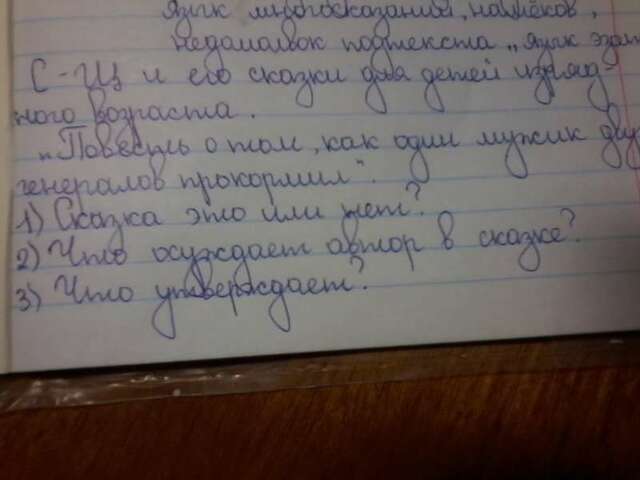 Язык иносказаний, намёков,
недомолвок подтекста „язык эзоп
С-Щ и его сказки для детей изряд-
ного возраста.
„Повесть о том, как один мужик дву
генералов прокормил".
1) Сказка это или нет?
2) Что осуждает автор в сказке?
3) Что утверждает?